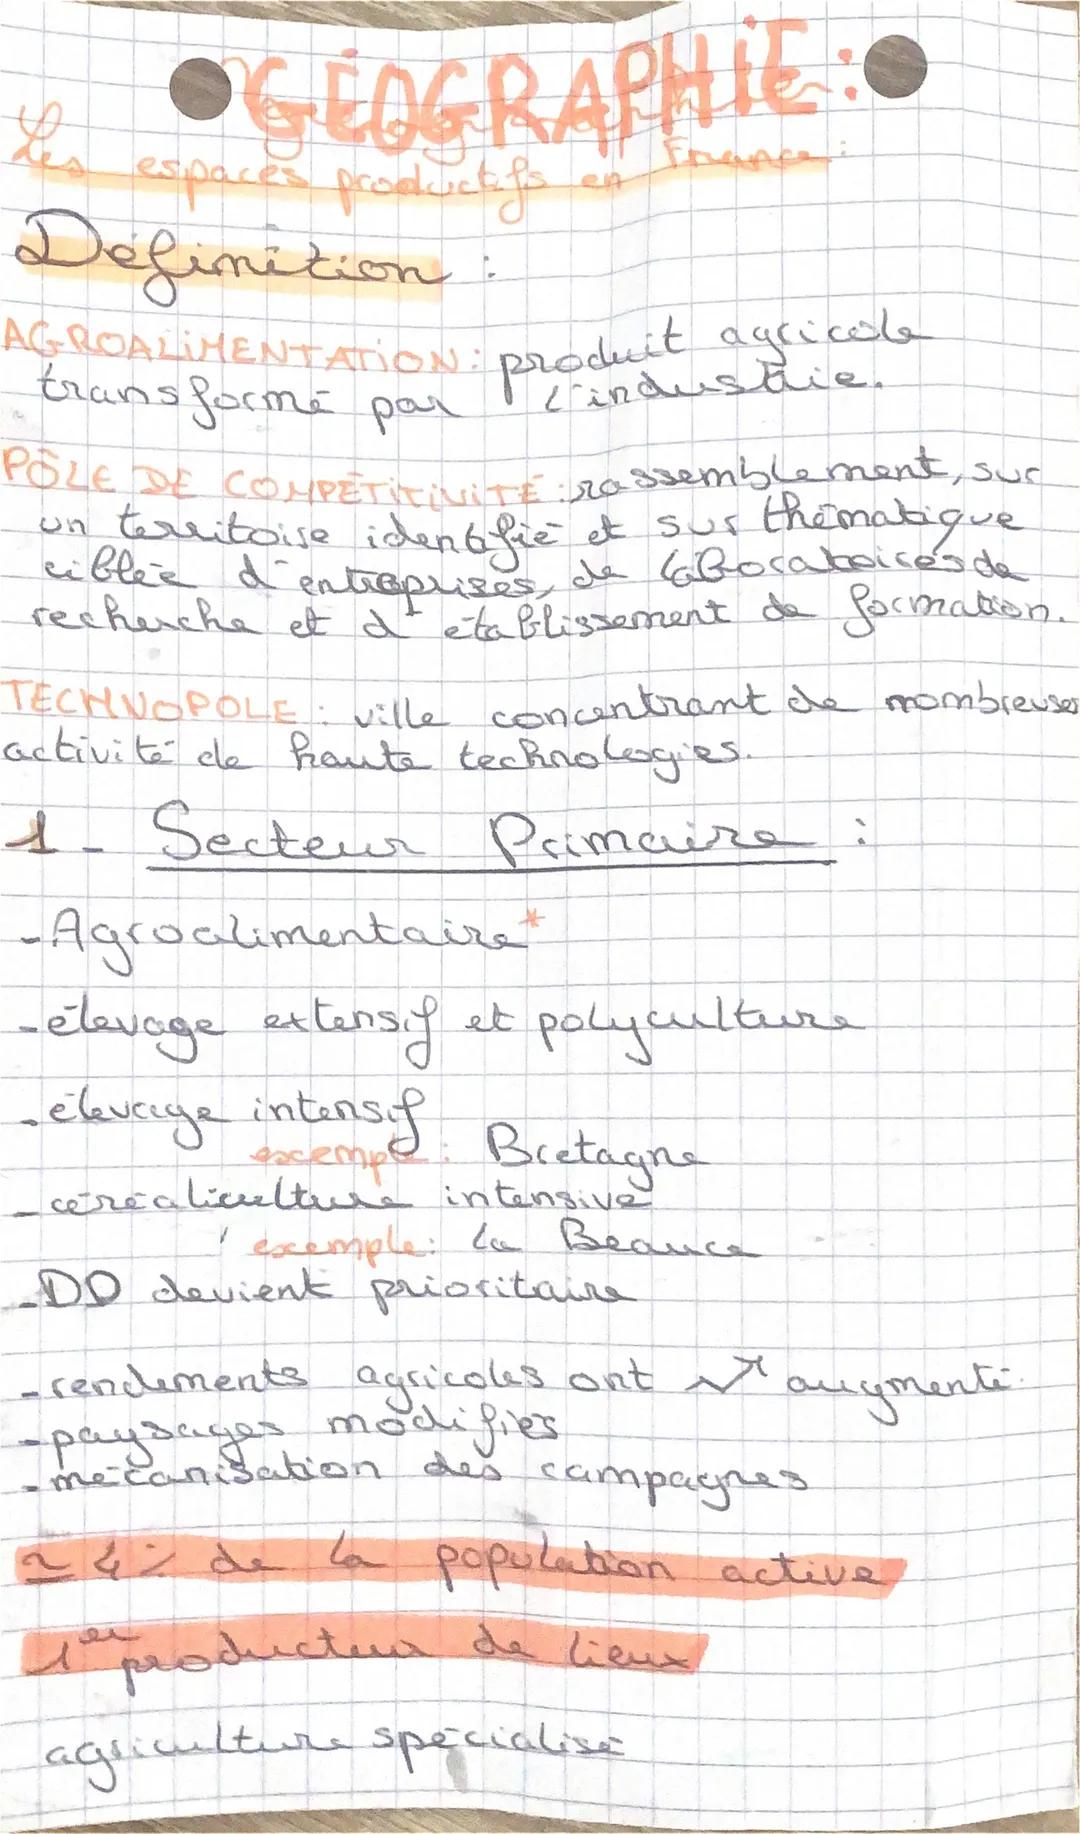 GÉOGRAPHIE :
Les espaces productifs en France :
Définition :
AGROALIMENTATION : produit agricole
transformé par l'industrie.
PÔLE DE COMPÉTITIVITÉ : rassemblement, sur
un territoire identifié et sur thématique
ciblée d'entreprises, de laboratoires de
recherche et d'établissement de formation.
TECHNOPOLE : ville concentrant de nombreuses
activité de haute technologies.
1 - Secteur Primaire :
- Agroalimentaire*
- élevage extensif et polyculture
- élevage intensif
exemple : Bretagne
- céréaliculture intensive
exemple : la Beauce
- DD devient prioritaire
- rendements agricoles ont ↗ augmenté.
- paysages modifiés
- mécanisation des campagnes
≃ 4% de la population active
1er producteur de lieux
agriculture spécialisé